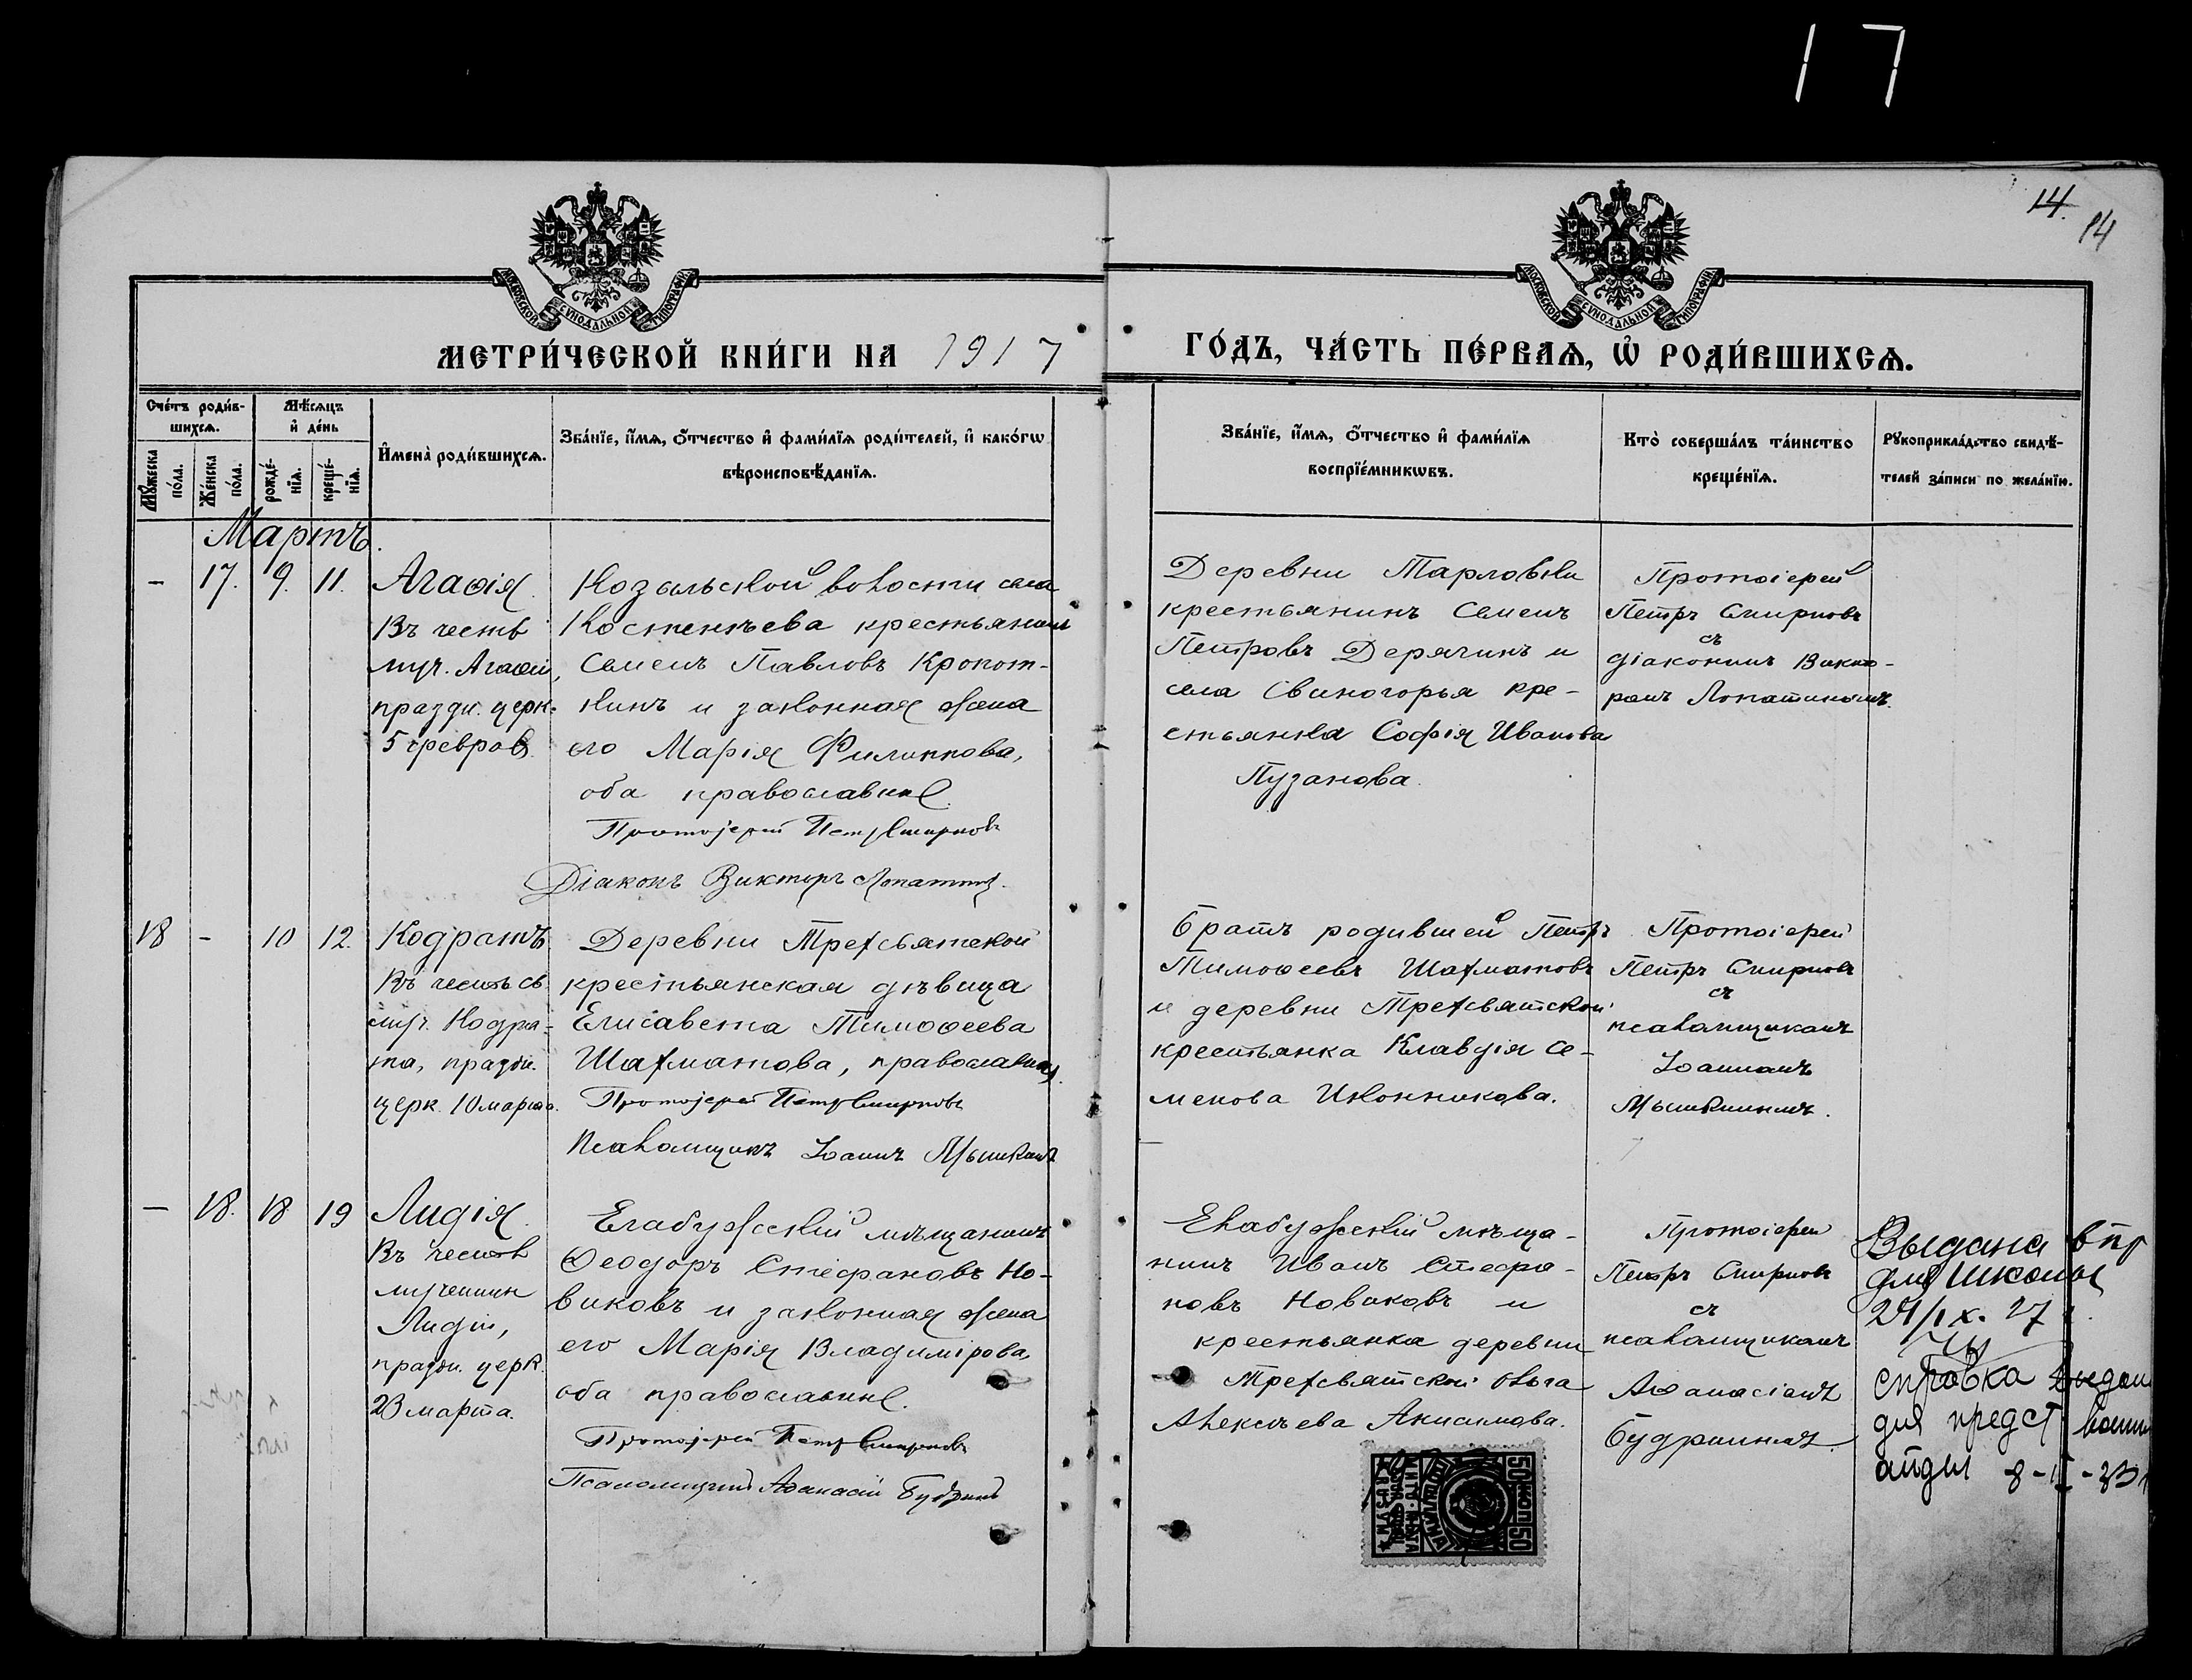 17
14.
14
МЕТРИ́ЧЕСКОЙ КНИ́ГИ НА 1917
ГО́ДЪ, ЧА́СТЬ ПЕ́РВАѦ, Ѽ РОДИ́ВШИХСѦ.
МОСКОВСКОЙ СѴНОДАЛЬНОЙ ТИПОГРАФІИ
МОСКОВСКОЙ СѴНОДАЛЬНОЙ ТИПОГРАФІИ
Сче́тъ роди́в-
шихсѧ.
Мꙋ́жеска по́ла.
Же́нска по́ла.
Мѣ́сѧцъ
и҆ де́нь
рожде́-
нїѧ.
креще́-
нїѧ.
И҆мена̀ роди́вшихсѧ.
Зва́нїе, и҆́мѧ, ѻ҆́тчество и҆ фами́лїѧ роди́телей, и҆ како́гѡ
вѣроисповѣ́данїѧ.
Зва́нїе, и҆́мѧ, ѻ҆́тчество и҆ фами́лїѧ
воспрїе́мникѡвъ.
Кто̀ соверша́лъ та́инство
креще́нїѧ.
Рꙋкоприкла́дство свидѣ́-
телей за́писи по жела́нїю.
Мартъ.
– 17. 9. 11.
Агаѳія.
Въ честь
муч. Агаѳіи,
праздн. церк.
5 феврал.
Козыльской волости села
Костенѣева крестьянинъ
Семенъ Павловъ Кропот-
кинъ и законная жена
его Марія Филиппова,
оба православные.
Протоіерей Петр Смирновъ
Діаконъ Викторъ Лопатинъ.
Деревни Тарловки
крестьянинъ Семенъ
Петровъ Дерячинъ и
села Свиногорья кре-
стьянка Софія Иванова
Пузанова.
Протоіерей
Петръ Смирновъ
съ
діакономъ Викто-
ромъ Лопатинымъ.
18 – 10 12.
Кодратъ
Въ честь св.
муч. Кодра-
та, праздн.
церк. 10 марта.
Деревни Трехсвятской
крестьянская дѣвица
Елисавета Тимоѳеева
Шахматова, православная.
Протоіерей Петр Смирновъ
Псаломщикъ Іоаннъ Мышкинъ
Братъ родившей Петръ
Тимоѳеевъ Шахматовъ
и деревни Трехсвятской
крестьянка Клавдія Се-
менова Иконникова.
Протоіерей
Петръ Смирновъ
съ
псаломщикомъ
Іоанномъ
Мышкинымъ.
– 18. 18 19
Лидія.
Въ честь
мученицы
Лидіи,
праздн. церк.
23 марта.
Елабужскій мѣщанинъ
Ѳеодоръ Стефановъ Но-
виковъ и законная жена
его Марія Владимірова,
оба православные.
Протоіерей Петр Смирновъ
Псаломщикъ Аѳанасій Будринъ
Елабужскій мѣща-
нинъ Иванъ Стефа-
новъ Новиковъ и
крестьянка деревни
Трехсвятской Ольга
Алексѣева Анисимова.
Протоіерей
Петръ Смирновъ
съ
псаломщикомъ
Аѳанасіемъ
Будринымъ.
Выдана впр
для школы
24/IX. 27
справка выдан
для предст
8-II-33
50 КОП 50